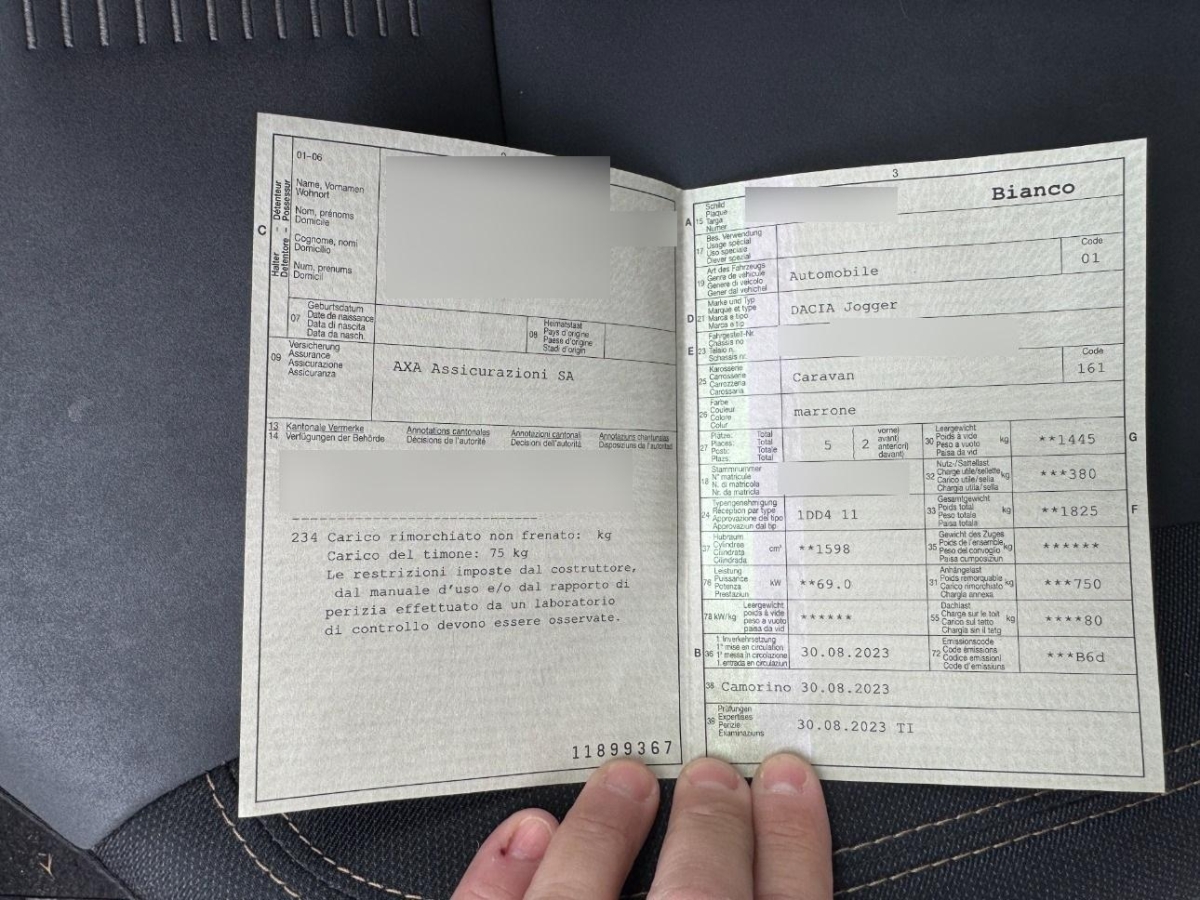 01-06
Halter - Détenteur
Detentore - Possessur
C
Name, Vornamen
Wohnort
Nom, prénoms
Domicile
Cognome, nomi
Domicilio
Num, prenums
Domicil
07
Geburtsdatum
Date de naissance
Data di nascita
Data da nasch.
08
Heimatstaat
Pays d'origine
Paese d'origine
Stadi d'origin
09
Versicherung
Assurance
Assicurazione
Assicuranza
AXA Assicurazioni SA
13 Kantonale Vermerke Annotations cantonales Annotazioni cantonali Annotaziuns chantunalas
14 Verfügungen der Behörde Décisions de l'autorité Decisioni dell'autorità Disposiziuns da l'autoritad
234 Carico rimorchiato non frenato: kg
Carico del timone: 75 kg
Le restrizioni imposte dal costruttore,
dal manuale d'uso e/o dal rapporto di
perizia effettuato da un laboratorio
di controllo devono essere osservate.
11899367
3
Bianco
A 15
Schild
Plaque
Targa
Numer
17
Bes. Verwendung
Usage spécial
Uso speciale
Diever spezial
Code
01
19
Art des Fahrzeugs
Genre de véhicule
Genere di veicolo
Gener dal vehichel
Automobile
D 21
Marke und Typ
Marque et type
Marca e tipo
Marca e tip
DACIA Jogger
E 23
Fahrgestell-Nr.
Châssis no
Telaio n.
Schassis nr.
Code
161
25
Karosserie
Carrosserie
Carrozzeria
Carossaria
Caravan
26
Farbe
Couleur
Colore
Colur
marrone
27
Plätze: Total
Places: Total
Posti: Totale
Plazs: Total
5
2
vorne)
avant)
anteriori)
davant)
30
Leergewicht
Poids à vide
Peso a vuoto
Paisa da vid
kg
**1445
G
18
Stammnummer
N° matricule
N. di matricola
Nr. da matricla
32
Nutz-/Sattellast
Charge utile/sellette
Carico utile/sella
Chargia utila/sella
kg
***380
24
Typengenehmigung
Réception par type
Approvazione del tipo
Approvaziun dal tip
1DD4 11
33
Gesamtgewicht
Poids total
Peso totale
Paisa totala
kg
**1825
F
37
Hubraum
Cylindrée
Cilindrata
Cilindrada
cm³
**1598
35
Gewicht des Zuges
Poids de l'ensemble
Peso del convoglio
Paisa cumposiziun
kg
******
76
Leistung
Puissance
Potenza
Prestaziun
kW
**69.0
31
Anhängelast
Poids remorquable
Carico rimorchiato
Chargia annexa
kg
***750
78 kW/kg
Leergewicht
poids à vide
peso a vuoto
paisa da vid
******
55
Dachlast
Charge sur le toit
Carico sul tetto
Chargia sin il tetg
kg
****80
B 36
1. Inverkehrsetzung
1re mise en circulation
1a messa in circolazione
1. entrada en circulaziun
30.08.2023
72
Emissionscode
Code émissions
Codice emissioni
Code d'emissiuns
***B6d
38 Camorino 30.08.2023
39
Prüfungen
Expertises
Perizie
Examinaziuns
30.08.2023 TI